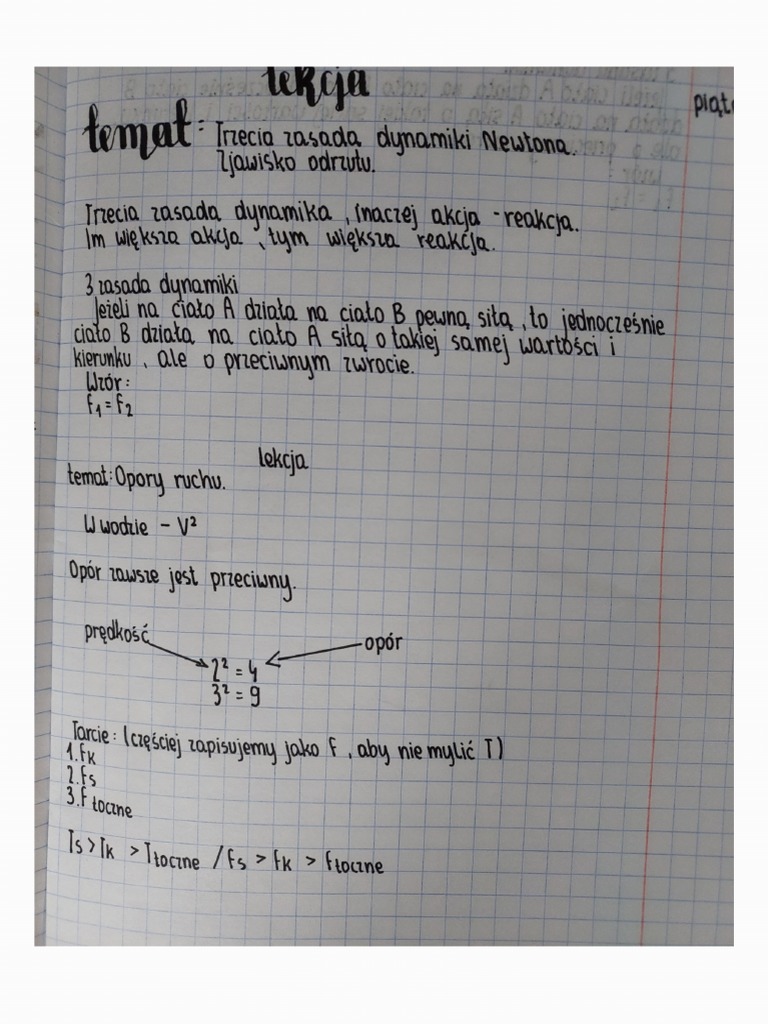 lekcja
piąt
temat: Trzecia zasada dynamiki Newtona.
Zjawisko odrzutu.
Trzecia zasada dynamika, inaczej akcja - reakcja.
Im większa akcja, tym większa reakcja.
3 zasada dynamiki
Jeżeli na ciało A działa na ciało B pewną siłą, to jednocześnie
ciało B działa na ciało A siłą o takiej samej wartości i
kierunku, ale o przeciwnym zwrocie.
Wzór:
F₁ = F₂
lekcja
temat: Opory ruchu.
W wodzie - V²
Opór zawsze jest przeciwny.
prędkość opór
2² = 4
3² = 9
Tarcie: (częściej zapisujemy jako F, aby nie mylić T)
1. Fk
2. Fs
3. F toczne
Ts > Tk > Ttoczne / Fs > Fk > Ftoczne